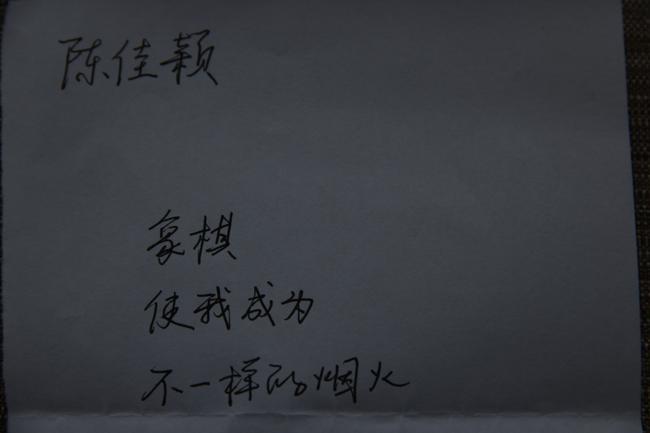 陈佳颖
象棋
使我成为
不一样的烟火